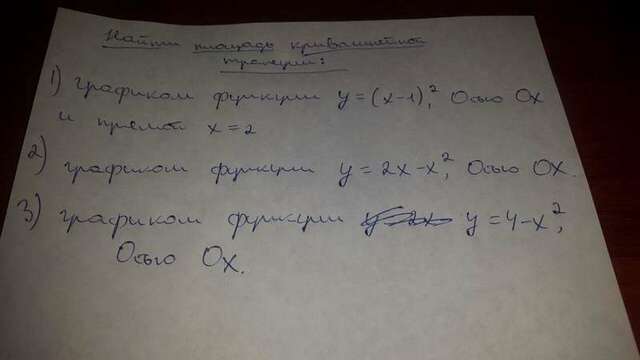 Найти площадь криволинейной
трапеции:
1) графиком функции y=(x-1)², Осью Ox
и прямой x=2
2) графиком функции y=2x-x², Осью OX.
3) графиком функции y=4-x²,
Осью Ox.